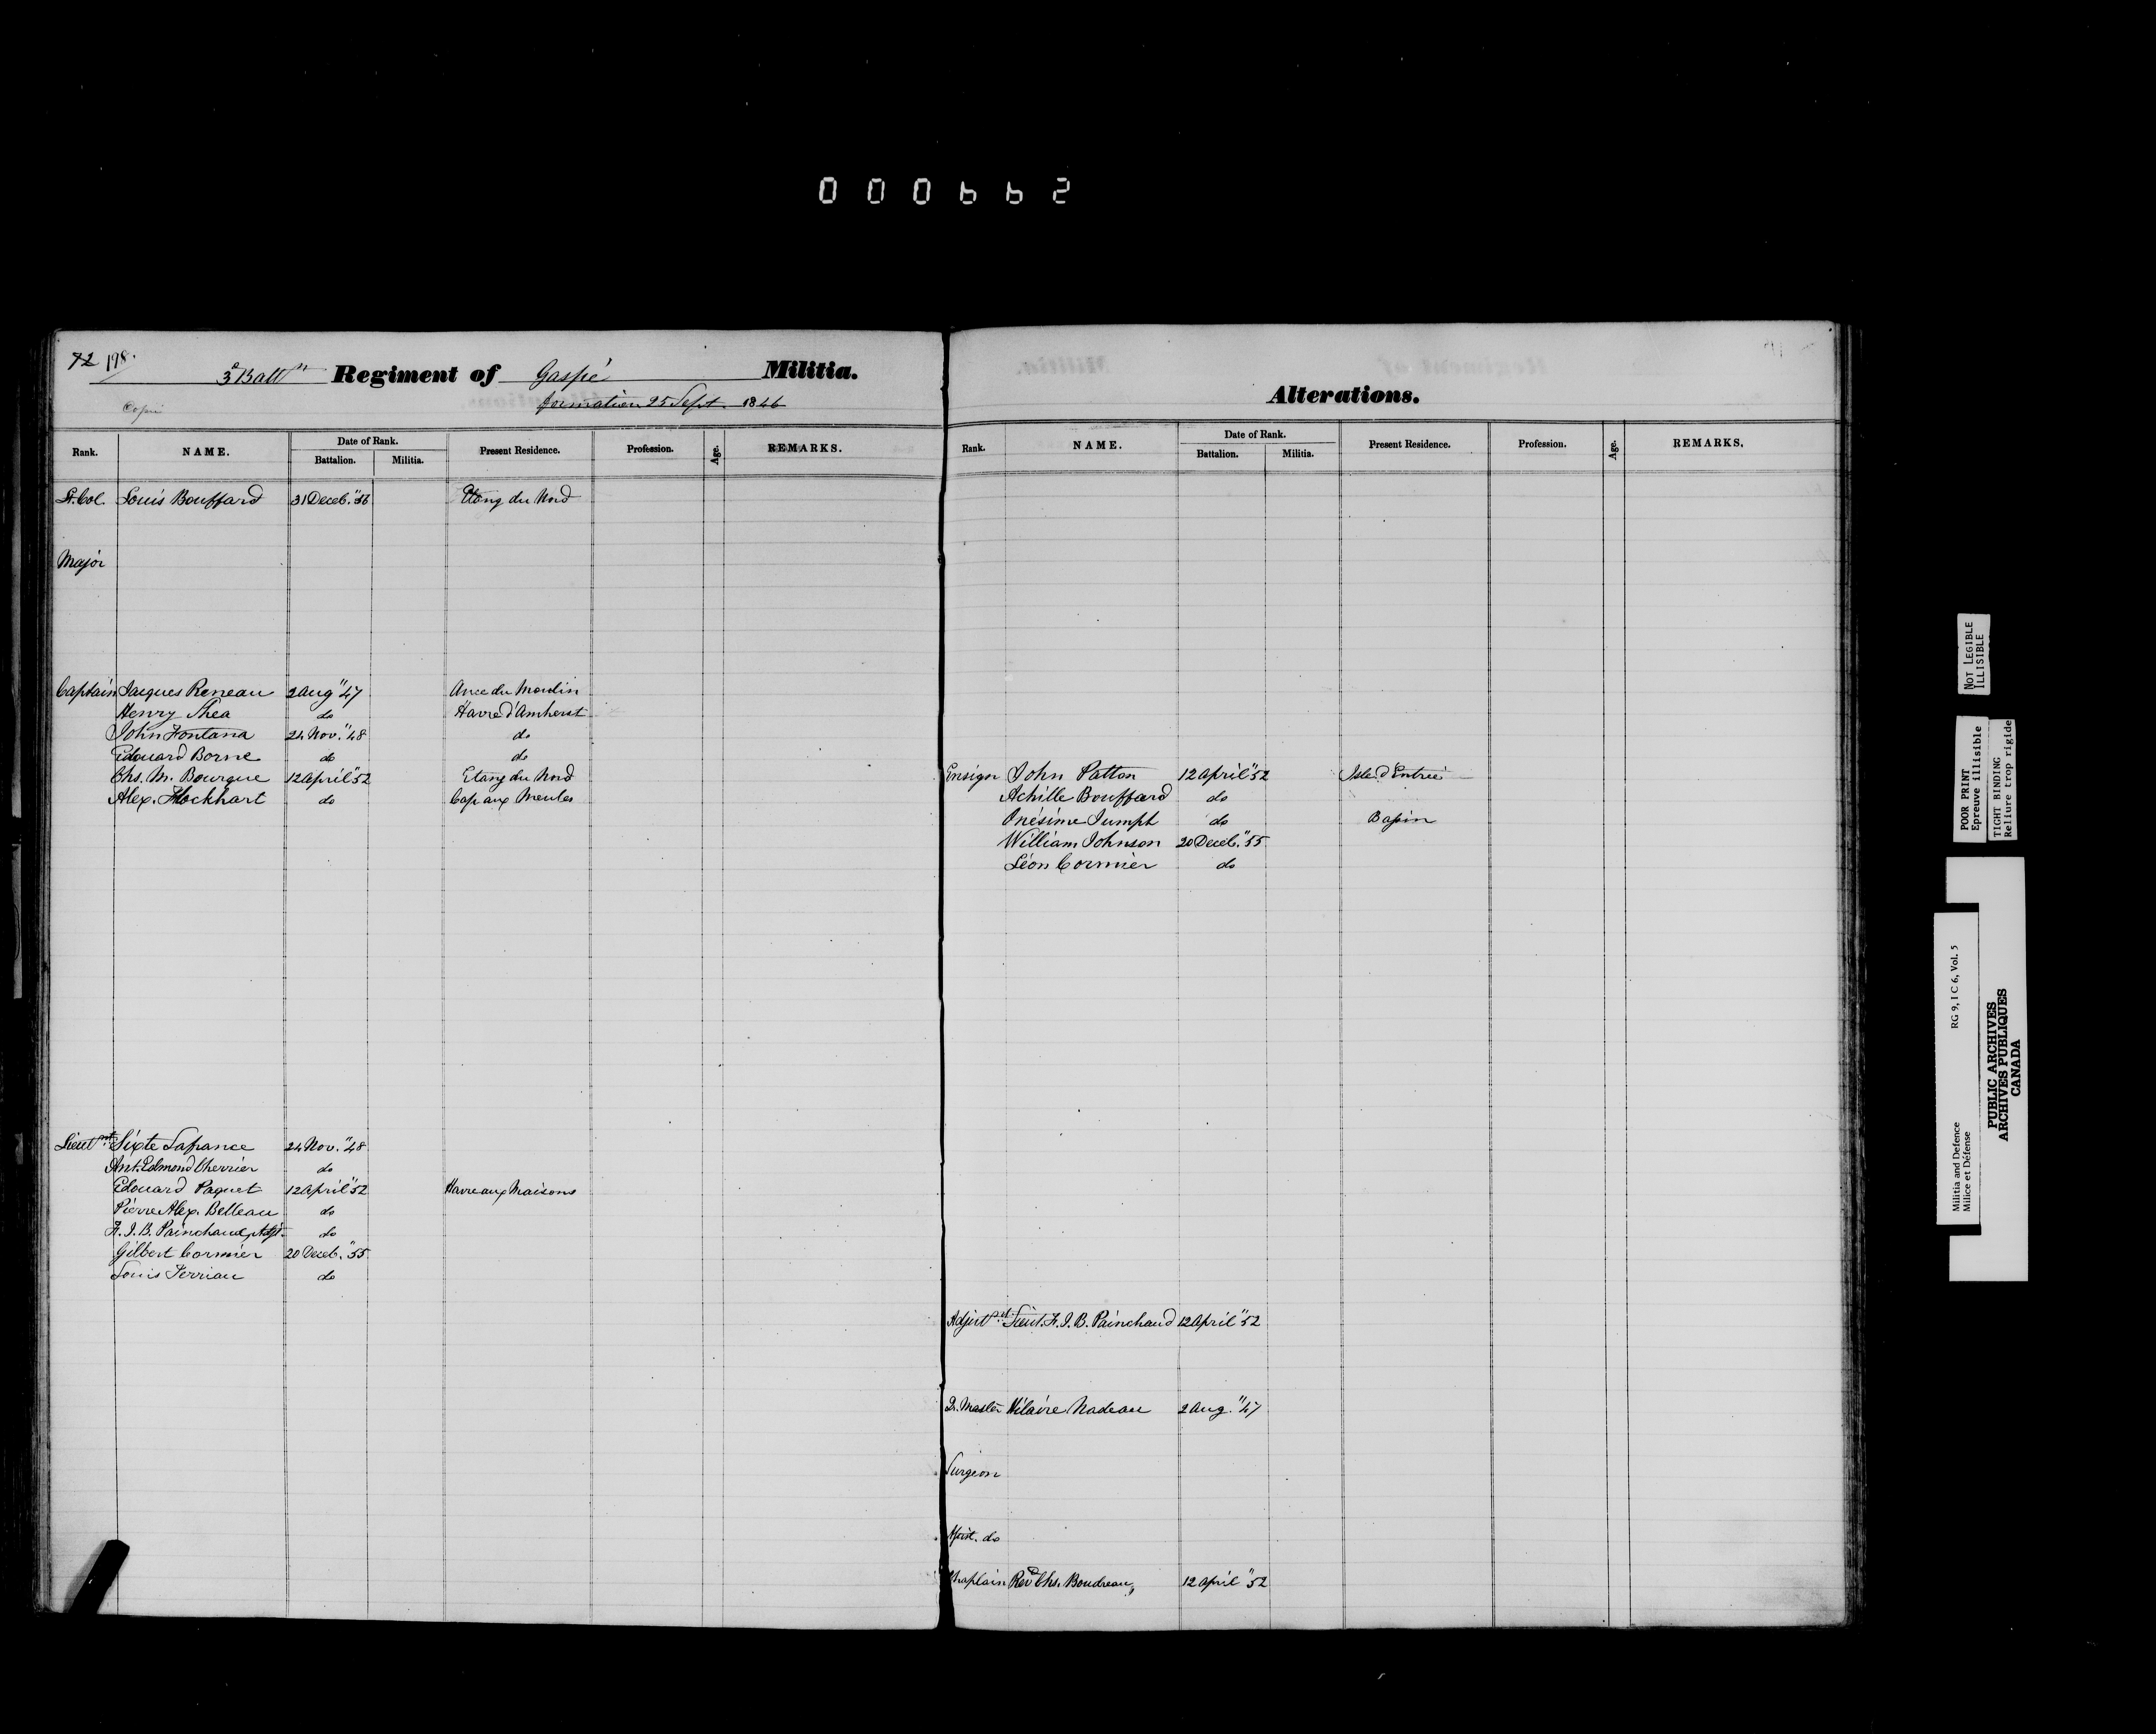 000662
72 198.
3e Battn Regiment of Gaspé Militia.
Copié
formation 25 Sept. 1846
Rank. NAME. Date of Rank. Battalion. Militia. Present Residence. Profession. Age. REMARKS.
Lt. Col. Louis Bouffard 31 Deceb. "56 Etang du Nord
Major
Captain Jacques Reneau 2 Aug "47 Ance du Moulin
Henry Shea do Havre d'Amherst
John Fontana 24 Nov. "48 do
Edouard Borne do do
Chs. M. Bourque 12 April "52 Etang du Nord
Alex. Flockhart do Cap aux Meules
Lieutnt Sixte Lafrance 24 Nov. "48
Ant. Edmond Cherrier do
Edouard Paquet 12 April "52 Havre aux Maisons
Pierre Alex. Belleau do
F. J. B. Painchaud, Adjt. do
Gilbert Cormier 20 Deceb. "55
Louis Terriau do
Alterations.
Rank. NAME. Date of Rank. Battalion. Militia. Present Residence. Profession. Age. REMARKS.
Ensign John Patton 12 April "52 Isle d'Entrée
Achille Bouffard do
Onésime Jumph do Bassin
William Johnson 20 Deceb. "55
Léon Cormier do
Adjutnt Lieut. F. J. B. Painchaud 12 April "52
Qr. Master Hilaire Nadeau 2 Aug. "47
Surgeon
Asist. do
Chaplain Revd Chs. Boudreau 12 April "52
NOT LEGIBLE
ILLISIBLE
POOR PRINT
Epreuve illisible
TIGHT BINDING
Reliure trop rigide
Militia and Defence RG 9, I C 6, Vol. 5
Milice et Défense
PUBLIC ARCHIVES
ARCHIVES PUBLIQUES
CANADA